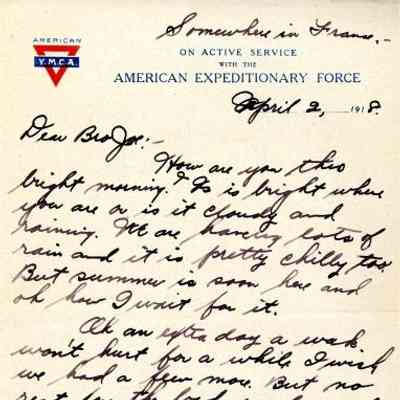 Somewhere in France,-
AMERICAN
Y.M.C.A.
ON ACTIVE SERVICE
WITH THE
AMERICAN EXPEDITIONARY FORCE
April 2, 1918.
Dear Bro Joe:-
How are you this
bright morning? Is is bright where
you are or is it cloudy and
raining. We are having lots of
rain and it is pretty chilly too.
But summer is soon here and
oh how I wait for it.
Oh an extra day a week
won't hurt for a while I wish
we had a few more. But no
rest for the